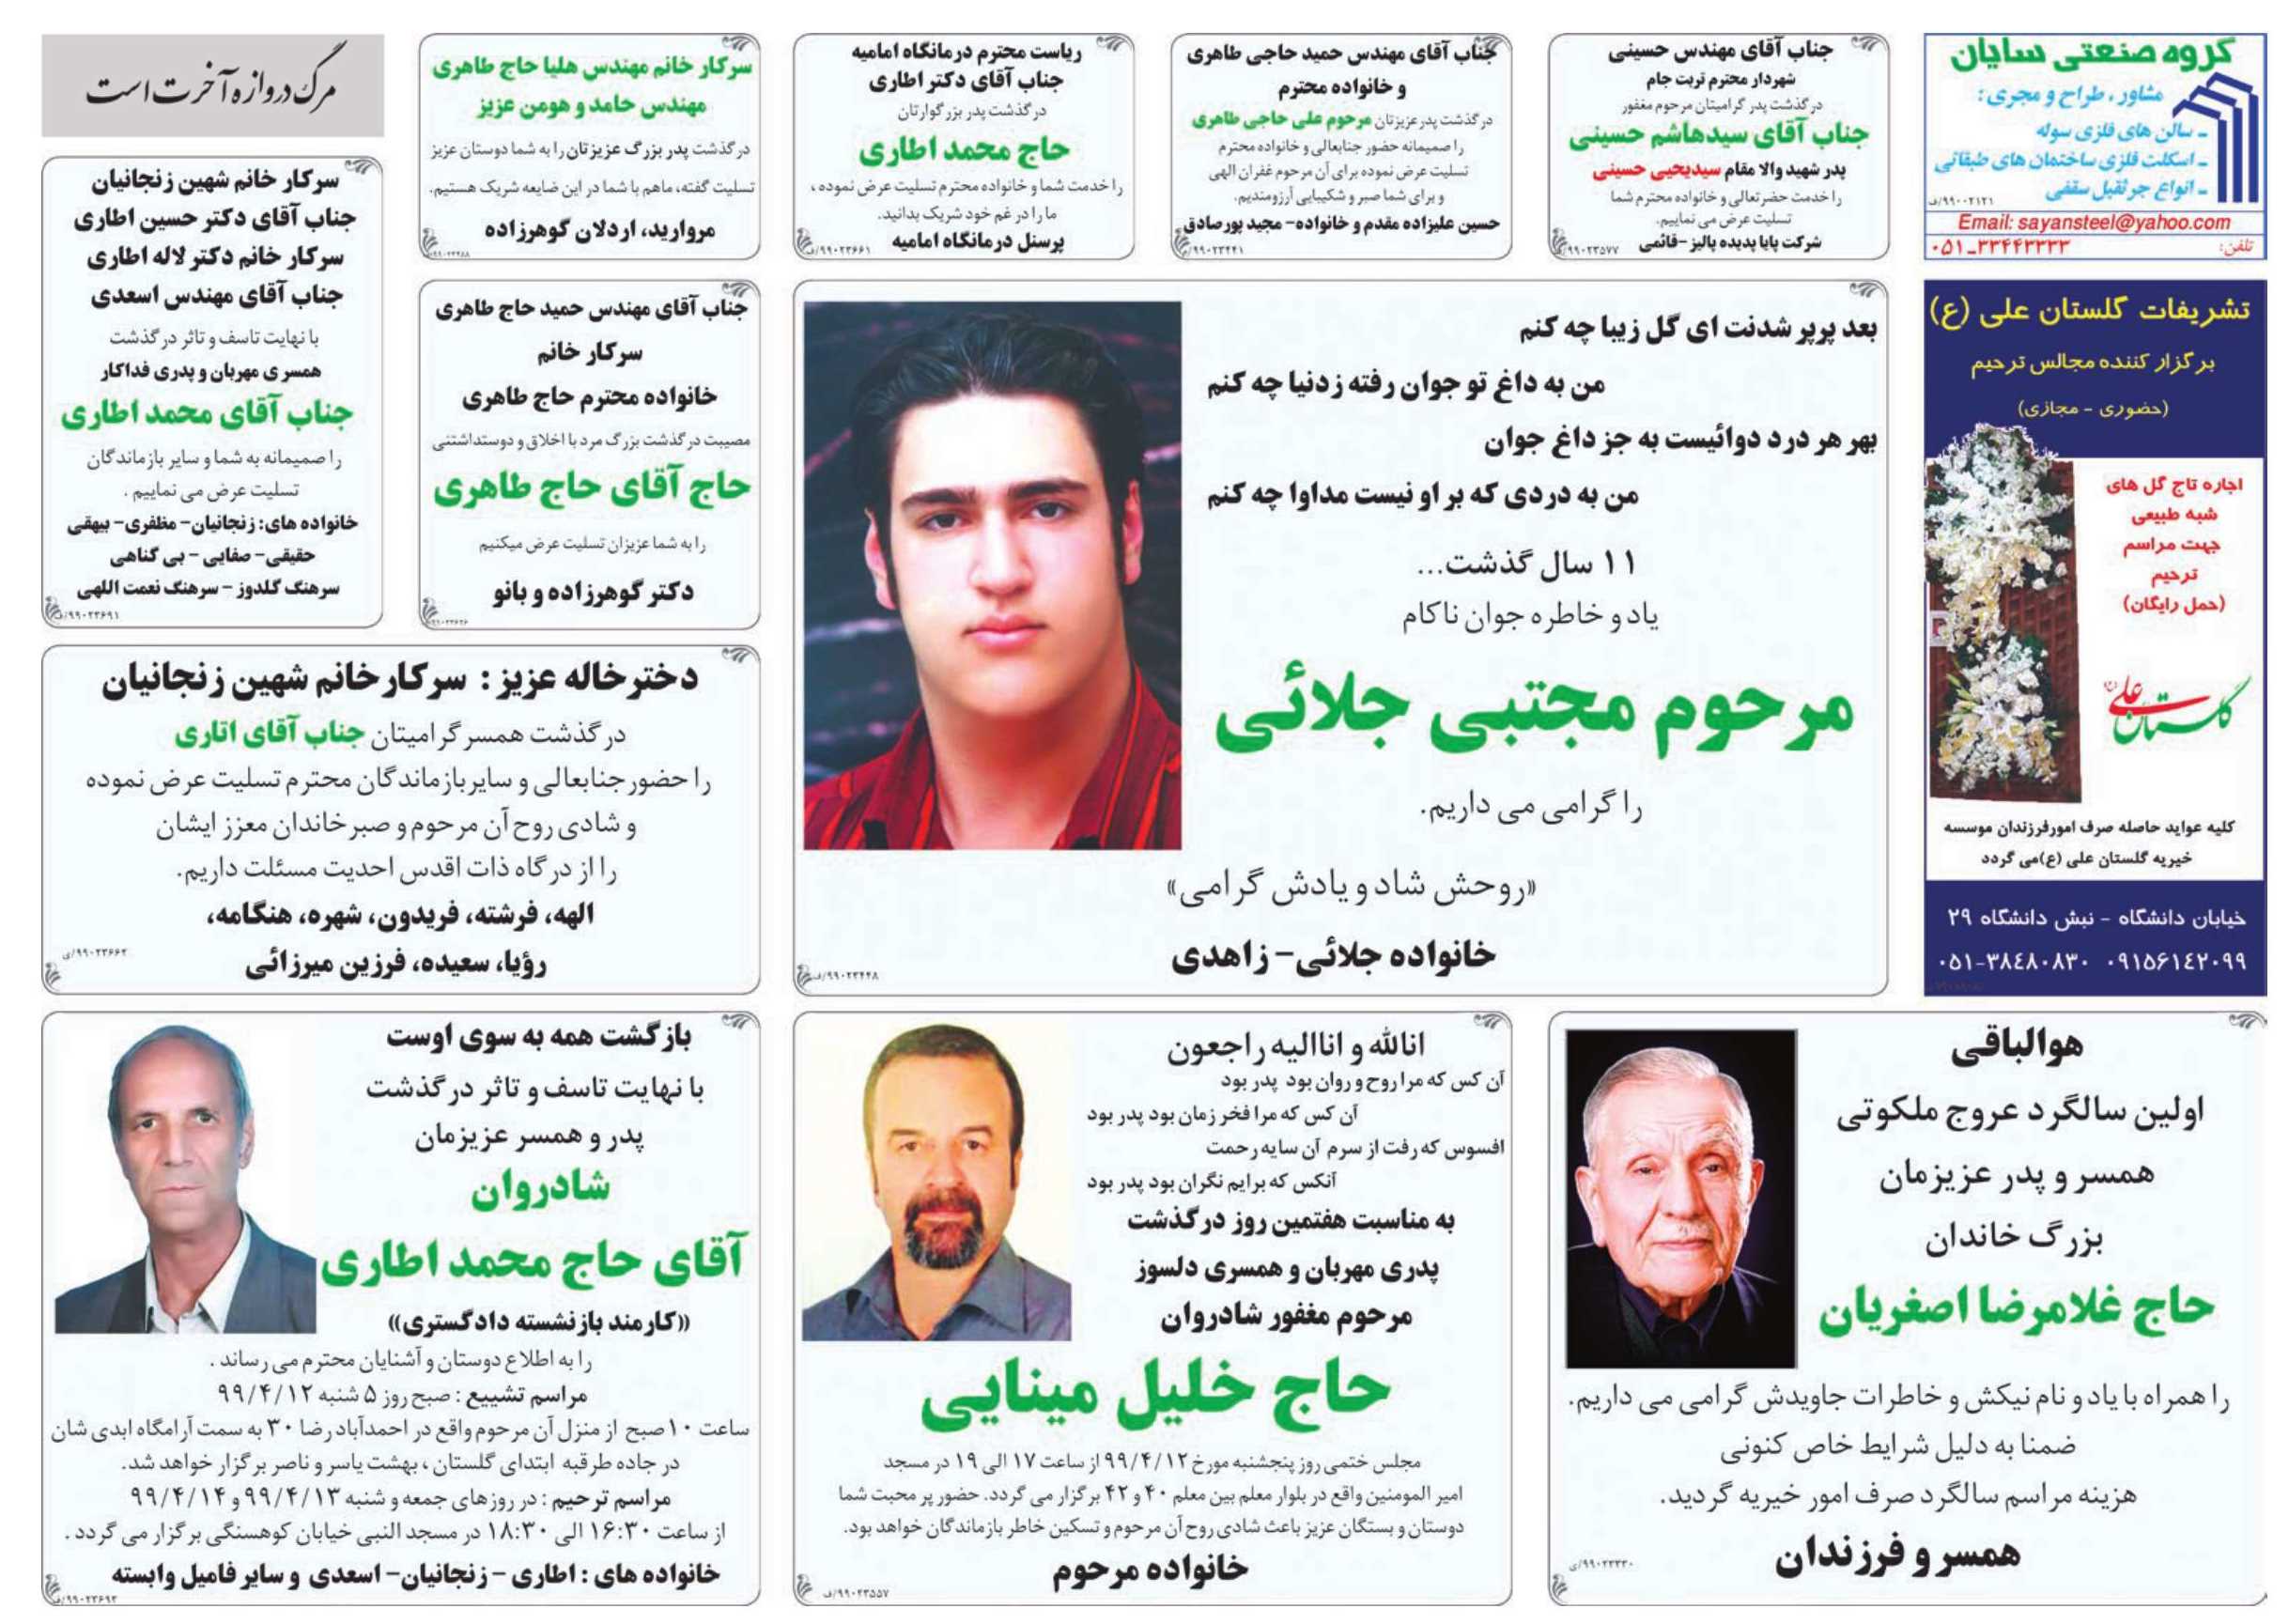 گروه صنعتی سایان
مشاور، طراح و مجری:
- سالن های فلزی سوله
- اسکلت فلزی ساختمان های طبقاتی
- انواع جرثقیل سقفی
Email: sayansteel@yahoo.com
تلفن: ۰۵۱-۳۳۴۴۳۳۳۳
جناب آقای مهندس حسینی
شهردار محترم تربت جام
درگذشت پدر گرامیتان مرحوم مغفور
جناب آقای سیدهاشم حسینی
پدر شهید والا مقام سیدیحیی حسینی
را خدمت حضرتعالی و خانواده محترم شما
تسلیت عرض می نماییم.
شرکت پایا پدیده پالیز -قائمی
۹۹۰۲۳۵۷۷
جناب آقای مهندس حمید حاجی طاهری
و خانواده محترم
درگذشت پدر عزیزتان مرحوم علی حاجی طاهری
را صمیمانه حضور جنابعالی و خانواده محترم
تسلیت عرض نموده برای آن مرحوم غفران الهی
و برای شما صبر و شکیبایی آرزومندیم.
حسین علیزاده مقدم و خانواده- مجید پورصادق
۹۹۰۲۳۴۴۱
ریاست محترم درمانگاه امامیه
جناب آقای دکتر اطاری
درگذشت پدر بزرگوارتان
حاج محمد اطاری
را خدمت شما و خانواده محترم تسلیت عرض نموده،
ما را در غم خود شریک بدانید.
پرسنل درمانگاه امامیه
۹۹۰۲۳۶۶۱
سرکار خانم مهندس هلیا حاج طاهری
مهندس حامد و هومن عزیز
درگذشت پدر بزرگ عزیزتان را به شما دوستان عزیز
تسلیت گفته، ماهم با شما در این ضایعه شریک هستیم.
مروارید، اردلان گوهرزاده
مرگ دروازه آخرت است
سرکار خانم شهین زنجانیان
جناب آقای دکتر حسین اطاری
سرکار خانم دکتر لاله اطاری
جناب آقای مهندس اسعدی
با نهایت تاسف و تاثر درگذشت
همسری مهربان و پدری فداکار
جناب آقای محمد اطاری
را صمیمانه به شما و سایر بازماندگان
تسلیت عرض می نماییم .
خانواده های: زنجانیان- مظفری- بیهقی
حقیقی- صفایی - بی گناهی
سرهنگ گلدوز - سرهنگ نعمت اللهی
۹۹۰۲۳۶۹۱
جناب آقای مهندس حمید حاج طاهری
سرکار خانم
خانواده محترم حاج طاهری
مصیبت درگذشت بزرگ مرد با اخلاق و دوستداشتنی
حاج آقای حاج طاهری
را به شما عزیزان تسلیت عرض میکنیم
دکتر گوهرزاده و بانو
بعد پرپر شدنت ای گل زیبا چه کنم
من به داغ تو جوان رفته ز دنیا چه کنم
بهر هر درد دوائیست به جز داغ جوان
من به دردی که بر او نیست مداوا چه کنم
۱۱ سال گذشت...
یاد و خاطره جوان ناکام
مرحوم مجتبی جلائی
را گرامی می داریم.
«روحش شاد و یادش گرامی»
خانواده جلائی- زاهدی
۹۹۰۲۳۴۴۸/ف
تشریفات گلستان علی (ع)
برگزار کننده مجالس ترحیم
(حضوری - مجازی)
اجاره تاج گل های
شبه طبیعی
جهت مراسم
ترحیم
(حمل رایگان)
گلستان علی
کلیه عواید حاصله صرف امورفرزندان موسسه
خیریه گلستان علی (ع)می گردد
خیابان دانشگاه - نبش دانشگاه ۲۹
۰۵۱-۳۸۴۸۰۸۳۰ ۰۹۱۵۶۱۴۲۰۹۹
دخترخاله عزیز : سرکارخانم شهین زنجانیان
درگذشت همسر گرامیتان جناب آقای اتاری
را حضور جنابعالی و سایربازماندگان محترم تسلیت عرض نموده
و شادی روح آن مرحوم و صبر خاندان معزز ایشان
را از درگاه ذات اقدس احدیت مسئلت داریم.
الهه، فرشته، فریدون، شهره، هنگامه،
رؤیا، سعیده، فرزین میرزائی
۹۹۰۲۳۶۶۲/ی
هوالباقی
اولین سالگرد عروج ملکوتی
همسر و پدر عزیزمان
بزرگ خاندان
حاج غلامرضا اصغریان
را همراه با یاد و نام نیکش و خاطرات جاویدش گرامی می داریم.
ضمنا به دلیل شرایط خاص کنونی
هزینه مراسم سالگرد صرف امور خیریه گردید.
همسر و فرزندان
۹۹۰۲۳۳۳۰/ی
اناالله و اناالیه راجعون
آن کس که مرا روح و روان بود پدر بود
آن کس که مرا فخر زمان بود پدر بود
افسوس که رفت از سرم آن سایه رحمت
آنکس که برایم نگران بود پدر بود
به مناسبت هفتمین روز درگذشت
پدری مهربان و همسری دلسوز
مرحوم مغفور شادروان
حاج خلیل مینایی
مجلس ختمی روز پنجشنبه مورخ ۹۹/۴/۱۲ از ساعت ۱۷ الی ۱۹ در مسجد
امیر المومنین واقع در بلوار معلم بین معلم ۴۰ و ۴۲ برگزار می گردد. حضور پر محبت شما
دوستان و بستگان عزیز باعث شادی روح آن مرحوم و تسکین خاطر بازماندگان خواهد بود.
خانواده مرحوم
۹۹۰۲۳۵۵۷/ف
بازگشت همه به سوی اوست
با نهایت تاسف و تاثر درگذشت
پدر و همسر عزیزمان
شادروان
آقای حاج محمد اطاری
«کارمند بازنشسته دادگستری»
را به اطلاع دوستان و آشنایان محترم می رساند .
مراسم تشییع : صبح روز ۵ شنبه ۹۹/۴/۱۲
ساعت ۱۰ صبح از منزل آن مرحوم واقع در احمدآباد رضا ۳۰ به سمت آرامگاه ابدی شان
در جاده طرقبه ابتدای گلستان، بهشت یاسر و ناصر برگزار خواهد شد.
مراسم ترحیم : در روزهای جمعه و شنبه ۹۹/۴/۱۳ و ۹۹/۴/۱۴
از ساعت ۱۶:۳۰ الی ۱۸:۳۰ در مسجد النبی خیابان کوهسنگی برگزار می گردد .
خانواده های : اطاری - زنجانیان- اسعدی و سایر فامیل وابسته
۹۹۰۲۳۶۹۲